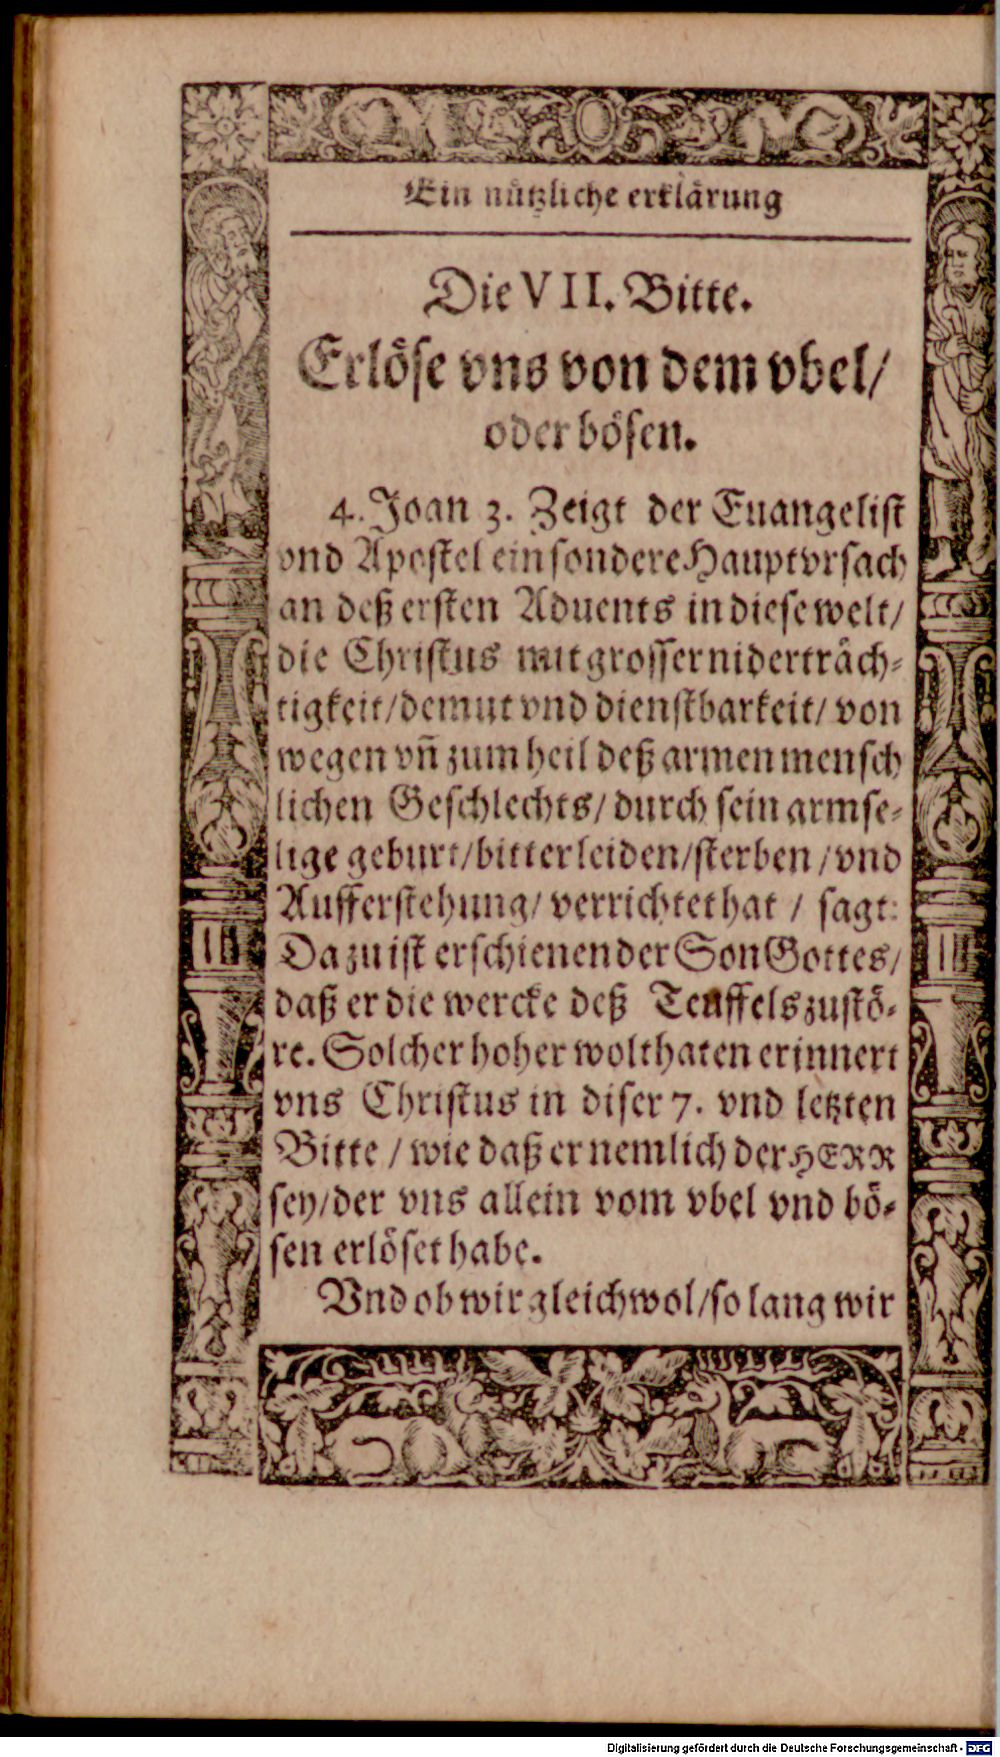 Ein nützliche erklärung
Die VII. Bitte.
Erlöse vns von dem vbel/
oder bösen.
4. Joan 3. Zeigt der Euangelist
vnd Apostel ein sondere Hauptvrsach
an deß ersten Aduents in diese welt/
die Christus mit grosser niderträch-
tigkeit/demut vnd dienstbarkeit/ von
wegen vñ zum heil deß armen mensch
lichen Geschlechts/ durch sein armse-
lige geburt/bitter leiden/sterben/vnd
Aufferstehung/ verrichtet hat / sagt:
Da zu ist erschienen der Son Gottes/
daß er die wercke deß Teuffels zustö-
re. Solcher hoher wolthaten erinnert
vns Christus in diser 7. vnd letzten
Bitte / wie daß er nemlich der HERR
sey/der vns allein vom vbel vnd bö-
sen erlöset habe.
Vnd ob wir gleichwol/so lang wir
Digitalisierung gefördert durch die Deutsche Forschungsgemeinschaft - DFG